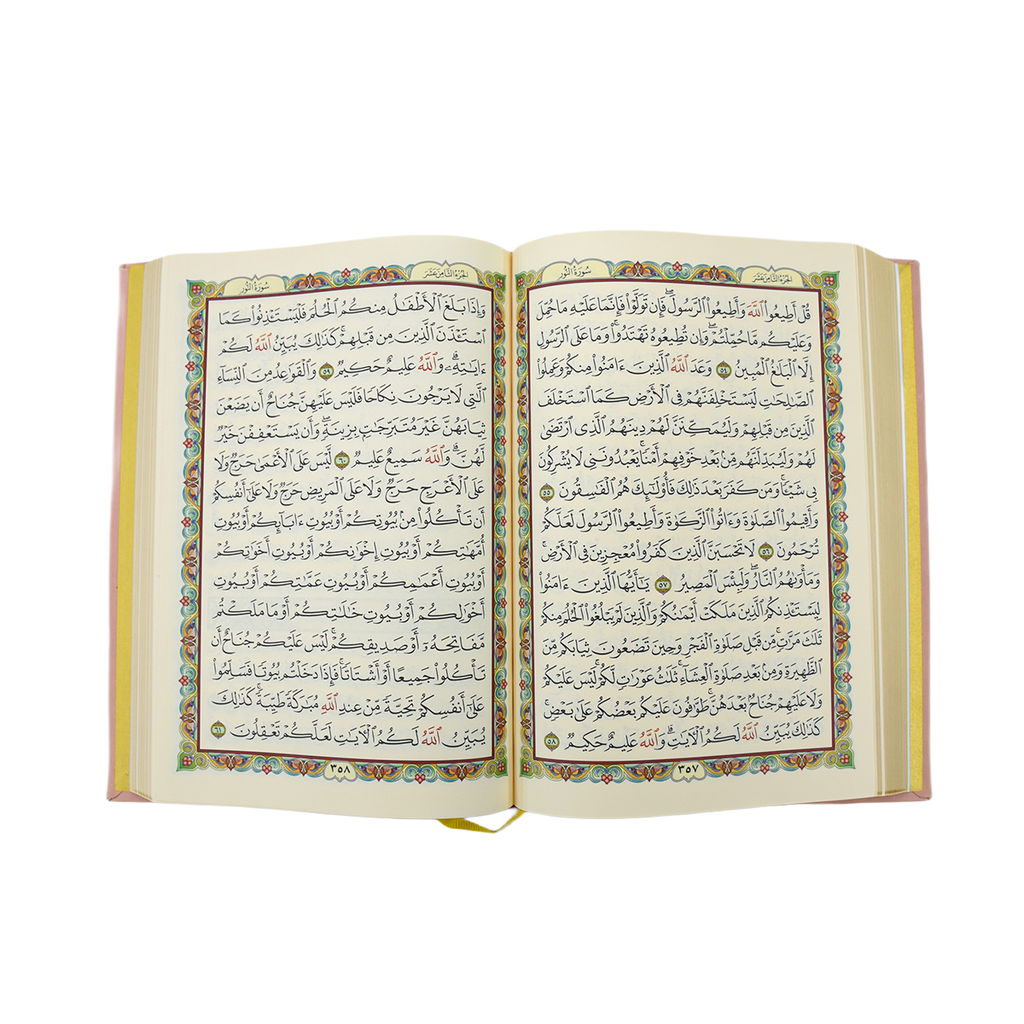 الجزء الثامن عشر
سورة النور
قُلْ أَطِيعُوا۟ ٱللَّهَ وَأَطِيعُوا۟ ٱلرَّسُولَۖ فَإِن تَوَلَّوْا۟ فَإِنَّمَا عَلَيْهِ مَا حُمِّلَ
وَعَلَيْكُم مَّا حُمِّلْتُمْۖ وَإِن تُطِيعُوهُ تَهْتَدُوا۟ۚ وَمَا عَلَى ٱلرَّسُولِ
إِلَّا ٱلْبَلَٰغُ ٱلْمُبِينُ ٥٤ وَعَدَ ٱللَّهُ ٱلَّذِينَ ءَامَنُوا۟ مِنكُمْ وَعَمِلُوا۟
ٱلصَّٰلِحَٰتِ لَيَسْتَخْلِفَنَّهُمْ فِى ٱلْأَرْضِ كَمَا ٱسْتَخْلَفَ
ٱلَّذِينَ مِن قَبْلِهِمْ وَلَيُمَكِّنَنَّ لَهُمْ دِينَهُمُ ٱلَّذِى ٱرْتَضَىٰ
لَهُمْ وَلَيُبَدِّلَنَّهُم مِّنۢ بَعْدِ خَوْفِهِمْ أَمْنًاۚ يَعْبُدُونَنِى لَا يُشْرِكُونَ
بِى شَيْـًٔاۚ وَمَن كَفَرَ بَعْدَ ذَٰلِكَ فَأُو۟لَٰٓئِكَ هُمُ ٱلْفَٰسِقُونَ ٥٥
وَأَقِيمُوا۟ ٱلصَّلَوٰةَ وَءَاتُوا۟ ٱلزَّكَوٰةَ وَأَطِيعُوا۟ ٱلرَّسُولَ لَعَلَّكُمْ
تُرْحَمُونَ ٥٦ لَا تَحْسَبَنَّ ٱلَّذِينَ كَفَرُوا۟ مُعْجِزِينَ فِى ٱلْأَرْضِۚ
وَمَأْوَىٰهُمُ ٱلنَّارُۖ وَلَبِئْسَ ٱلْمَصِيرُ ٥٧ يَٰٓأَيُّهَا ٱلَّذِينَ ءَامَنُوا۟
لِيَسْتَـْٔذِنكُمُ ٱلَّذِينَ مَلَكَتْ أَيْمَٰنُكُمْ وَٱلَّذِينَ لَمْ يَبْلُغُوا۟ ٱلْحُلُمَ مِنكُمْ
ثَلَٰثَ مَرَّٰتٍۚ مِّن قَبْلِ صَلَوٰةِ ٱلْفَجْرِ وَحِينَ تَضَعُونَ ثِيَابَكُم مِّنَ
ٱلظَّهِيرَةِ وَمِنۢ بَعْدِ صَلَوٰةِ ٱلْعِشَآءِۚ ثَلَٰثُ عَوْرَٰتٍ لَّكُمْۚ لَيْسَ عَلَيْكُمْ
وَلَا عَلَيْهِمْ جُنَاحٌۢ بَعْدَهُنَّۚ طَوَّٰفُونَ عَلَيْكُم بَعْضُكُمْ عَلَىٰ بَعْضٍۚ
كَذَٰلِكَ يُبَيِّنُ ٱللَّهُ لَكُمُ ٱلْءَايَٰتِۗ وَٱللَّهُ عَلِيمٌ حَكِيمٌ ٥٨
٣٥٧
الجزء الثامن عشر
سورة النور
وَإِذَا بَلَغَ ٱلْأَطْفَٰلُ مِنكُمُ ٱلْحُلُمَ فَلْيَسْتَـْٔذِنُوا۟ كَمَا
ٱسْتَـْٔذَنَ ٱلَّذِينَ مِن قَبْلِهِمْۚ كَذَٰلِكَ يُبَيِّنُ ٱللَّهُ لَكُمْ
ءَايَٰتِهِۦۗ وَٱللَّهُ عَلِيمٌ حَكِيمٌ ٥٩ وَٱلْقَوَٰعِدُ مِنَ ٱلنِّسَآءِ
ٱلَّٰتِى لَا يَرْجُونَ نِكَاحًا فَلَيْسَ عَلَيْهِنَّ جُنَاحٌ أَن يَضَعْنَ
ثِيَابَهُنَّ غَيْرَ مُتَبَرِّجَٰتٍۭ بِزِينَةٍۖ وَأَن يَسْتَعْفِفْنَ خَيْرٌ
لَّهُنَّۗ وَٱللَّهُ سَمِيعٌ عَلِيمٌ ٦٠ لَّيْسَ عَلَى ٱلْأَعْمَىٰ حَرَجٌ وَلَا
عَلَى ٱلْأَعْرَجِ حَرَجٌ وَلَا عَلَى ٱلْمَرِيضِ حَرَجٌ وَلَا عَلَىٰٓ أَنفُسِكُمْ
أَن تَأْكُلُوا۟ مِنۢ بُيُوتِكُمْ أَوْ بُيُوتِ ءَابَآئِكُمْ أَوْ بُيُوتِ
أُمَّهَٰتِكُمْ أَوْ بُيُوتِ إِخْوَٰنِكُمْ أَوْ بُيُوتِ أَخَوَٰتِكُمْ
أَوْ بُيُوتِ أَعْمَٰمِكُمْ أَوْ بُيُوتِ عَمَّٰتِكُمْ أَوْ بُيُوتِ
أَخْوَٰلِكُمْ أَوْ بُيُوتِ خَٰلَٰتِكُمْ أَوْ مَا مَلَكْتُم
مَّفَاتِحَهُۥٓ أَوْ صَدِيقِكُمْۚ لَيْسَ عَلَيْكُمْ جُنَاحٌ أَن
تَأْكُلُوا۟ جَمِيعًا أَوْ أَشْتَاتًاۚ فَإِذَا دَخَلْتُم بُيُوتًا فَسَلِّمُوا۟
عَلَىٰٓ أَنفُسِكُمْ تَحِيَّةً مِّنْ عِندِ ٱللَّهِ مُبَٰرَكَةً طَيِّبَةًۚ كَذَٰلِكَ
يُبَيِّنُ ٱللَّهُ لَكُمُ ٱلْءَايَٰتِ لَعَلَّكُمْ تَعْقِلُونَ ٦١
٣٥٨